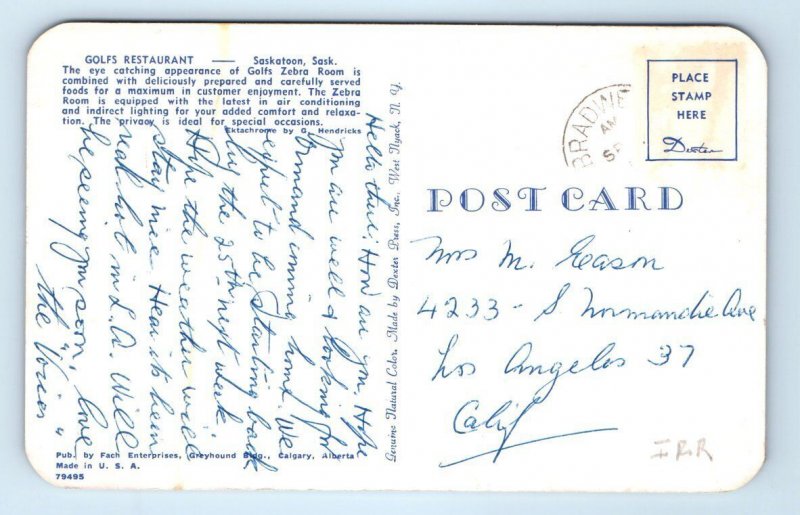 GOLFS RESTAURANT — Saskatoon, Sask.
The eye catching appearance of Golfs Zebra Room is
combined with deliciously prepared and carefully served
foods for a maximum in customer enjoyment. The Zebra
Room is equipped with the latest in air conditioning
and indirect lighting for your added comfort and relaxa-
tion. The privacy is ideal for special occasions.
Ektachrome by G. Hendricks
Hello there; How are you. Hope
you are well & looking for
Ormand coming home. We
expect to be starting back
by the 25th next week.
Hope the weather will
stay nice. Hear it's been
real hot in L.A. Will
be seeing you soon, love
"the Vories"
Pub. by Fach Enterprises, Greyhound Bldg., Calgary, Alberta
Made in U. S. A.
79495
Genuine Natural Color. Made by Dexter Press, Inc., West Nyack, N. Y.
BRADWE
AM
SE
PLACE
STAMP
HERE
Dexter
POST CARD
Mrs M. Eason
4233 - S Normandie Ave
Los Angeles 37
Calif